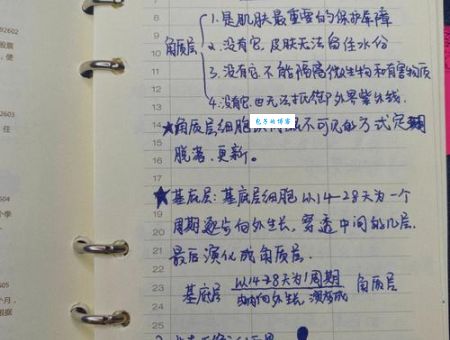 1.是肌肤最重要的保护屏障
角质层
2.没有它,皮肤无法留住水份
3.没有它,不能隔离微生物和有害物质
4.没有它也无法抵御外界紫外线.
包子的博客
★角质层细胞以肉眼不可见的方式定期
脱落、更新。
★基底层:基底层细胞以14-28天为一个
周期逐步向外生长,穿透中间的几层,
最后演化成角质层.
以14-28天为1周期
基底层 由内向外生长,演变成 角质层
8
9
10
11
12
13
14
15
16
17
18
19
20
21
22
23
24
25